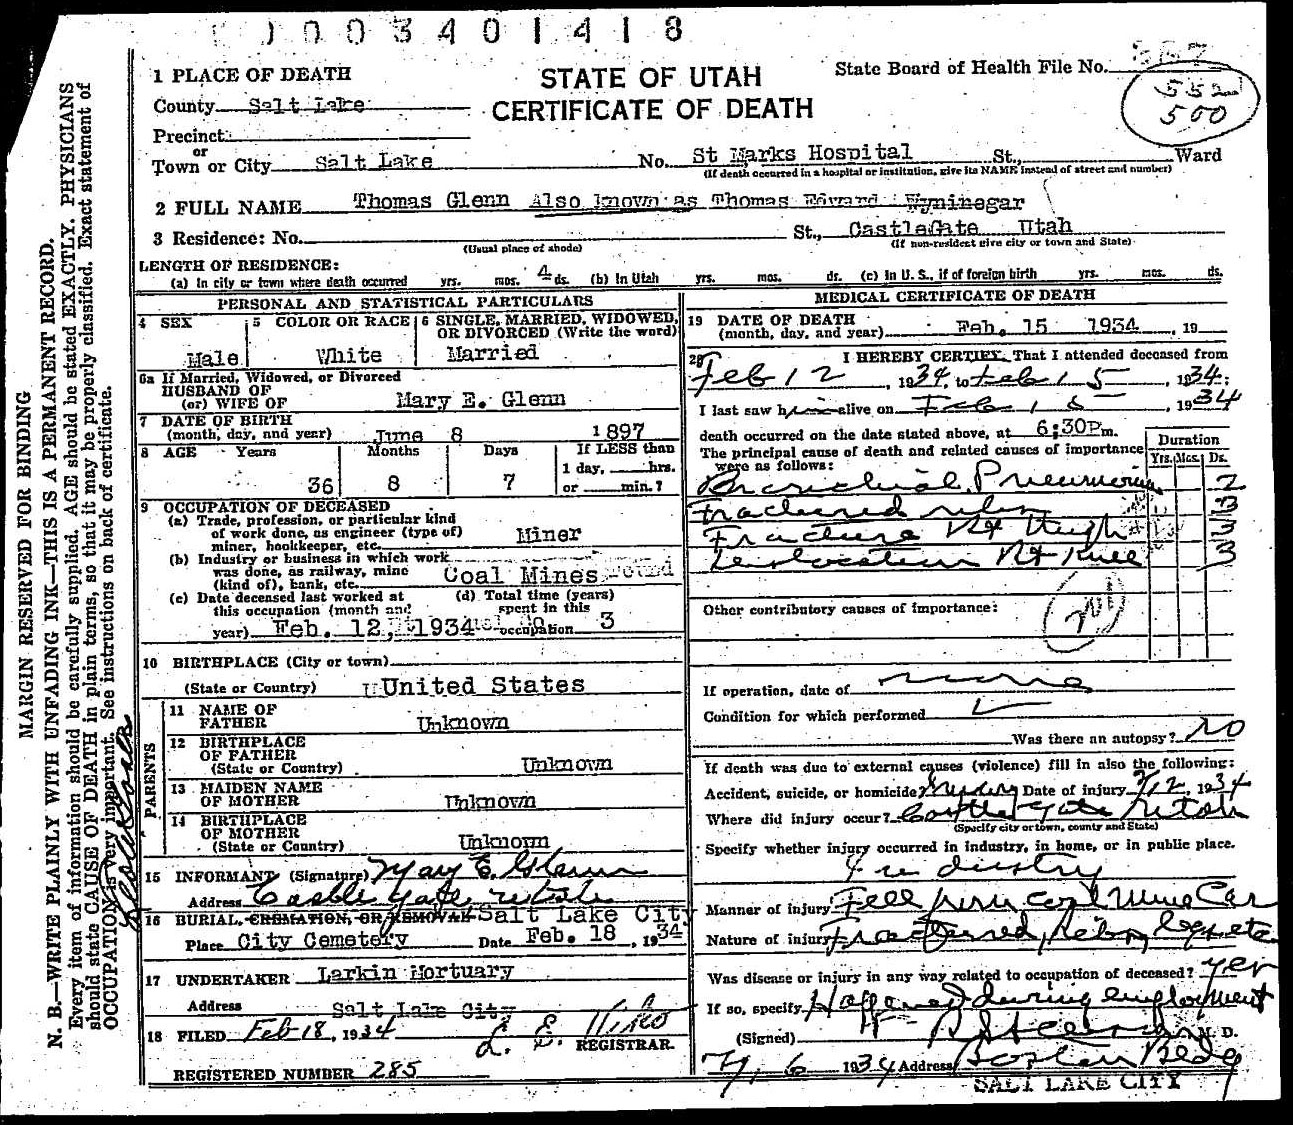 0003401418
1 PLACE OF DEATH
STATE OF UTAH
CERTIFICATE OF DEATH
State Board of Health File No. 557
552
500
County Salt Lake
Precinct
or
Town or City Salt Lake No. St Marks Hospital St., Ward
(If death occurred in a hospital or institution, give its NAME instead of street and number)
2 FULL NAME Thomas Glenn Also known as Thomas Edward Wyninegar
3 Residence: No. St., CastleGate Utah
(Usual place of abode) (If non-resident give city or town and State)
LENGTH OF RESIDENCE:
(a) In city or town where death occurred yrs. mos. 4 ds. (b) In Utah yrs. mos. ds. (c) In U. S., if of foreign birth yrs. mos. ds.
PERSONAL AND STATISTICAL PARTICULARS
4 SEX
Male
5 COLOR OR RACE
White
6 SINGLE, MARRIED, WIDOWED, OR DIVORCED (Write the word)
Married
6a If Married, Widowed, or Divorced
HUSBAND OF
(or) WIFE OF Mary E. Glenn
7 DATE OF BIRTH
(month, day, and year) June 8 1897
8 AGE Years Months Days If LESS than
1 day, hrs.
36 8 7 or min.?
9 OCCUPATION OF DECEASED
(a) Trade, profession, or particular kind
of work done, as engineer (type of)
miner, bookkeeper, etc. Miner
(b) Industry or business in which work
was done, as railway, mine
(kind of), bank, etc. Coal Mines
(c) Date deceased last worked at
this occupation (month and
year) Feb. 12, 1934
(d) Total time (years)
spent in this
occupation 3
10 BIRTHPLACE (City or town)
(State or Country) United States
PARENTS
11 NAME OF
FATHER Unknown
12 BIRTHPLACE
OF FATHER
(State or Country) Unknown
13 MAIDEN NAME
OF MOTHER Unknown
14 BIRTHPLACE
OF MOTHER
(State or Country) Unknown
15 INFORMANT (Signature) Mary E. Glenn
Address Castle Gate Utah
16 BURIAL, CREMATION, OR REMOVAL Salt Lake City
Place City Cemetery Date Feb. 18, 1934
17 UNDERTAKER Larkin Mortuary
Address Salt Lake City
18 FILED Feb 18, 1934
REGISTRAR.
REGISTERED NUMBER 285
MEDICAL CERTIFICATE OF DEATH
19 DATE OF DEATH
(month, day, and year) Feb. 15 1934, 19
20 I HEREBY CERTIFY, That I attended deceased from
Feb 12, 1934, to Feb 15, 1934;
I last saw him alive on Feb 15, 1934
death occurred on the date stated above, at 6:30Pm.
The principal cause of death and related causes of importance
were as follows:
Duration
Yrs. Mos. Ds.
Bronchial Pneumonia 2
Fractured ribs 3
Fracture Rt thigh 3
Dislocation Rt Knee 3
Other contributory causes of importance:
If operation, date of none
Condition for which performed
Was there an autopsy? No
If death was due to external causes (violence) fill in also the following:
Accident, suicide, or homicide? Date of injury 2/12, 1934
Where did injury occur? Castle Gate Utah
(Specify city or town, county and State)
Specify whether injury occurred in industry, in home, or in public place.
Industry
Manner of injury Fell from coal mine Car
Nature of injury Fractured, ribs, leg, etc
Was disease or injury in any way related to occupation of deceased? yes
If so, specify Happened during employment
(Signed) M. D.
1934 Address Boston Bldg
SALT LAKE CITY
MARGIN RESERVED FOR BINDING
N. B.—WRITE PLAINLY WITH UNFADING INK—THIS IS A PERMANENT RECORD.
Every item of information should be carefully supplied. AGE should be stated EXACTLY. PHYSICIANS
should state CAUSE OF DEATH in plain terms, so that it may be properly classified. Exact statement of
OCCUPATION is very important. See instructions on back of certificate.